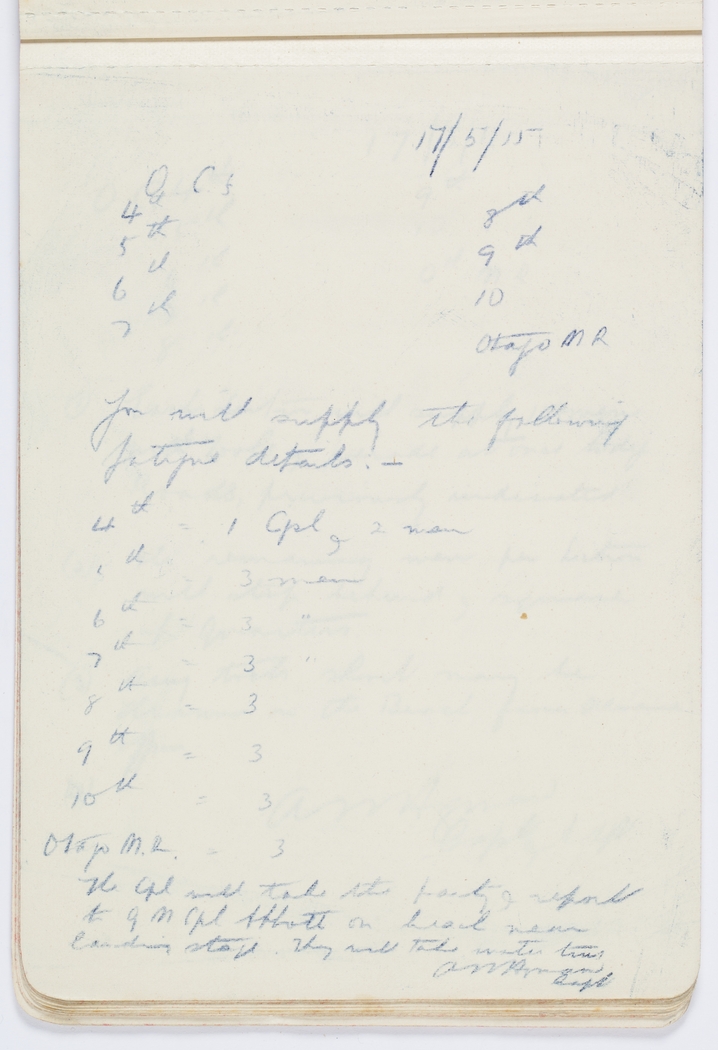 17/5/15
O C s
4th
5th
6th
7th
8th
9th
10
Otago M R
You will supply the following
fatigue details: -
4th = 1 Cpl & 2 men
th 3 men
6th = 3 "
7th = 3 "
8th = 3
9th = 3
10th = 3
Otago M.R. = 3
The Cpl will take the party & report
to Q M Cpl Abbott on beach near
landing stage. They will take water tins
Capt